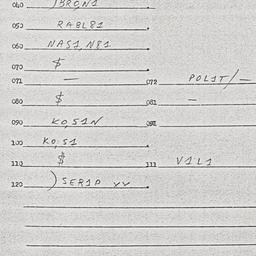 040 JBRO,N1
050 RABL81
060 NAS1,N81
070 $
071 — 072 POL1T/—
080 $ 081 —
090 KO,S1N 091
100 KO,S1
110 $ 111 V1L1
120 )SER1P XV